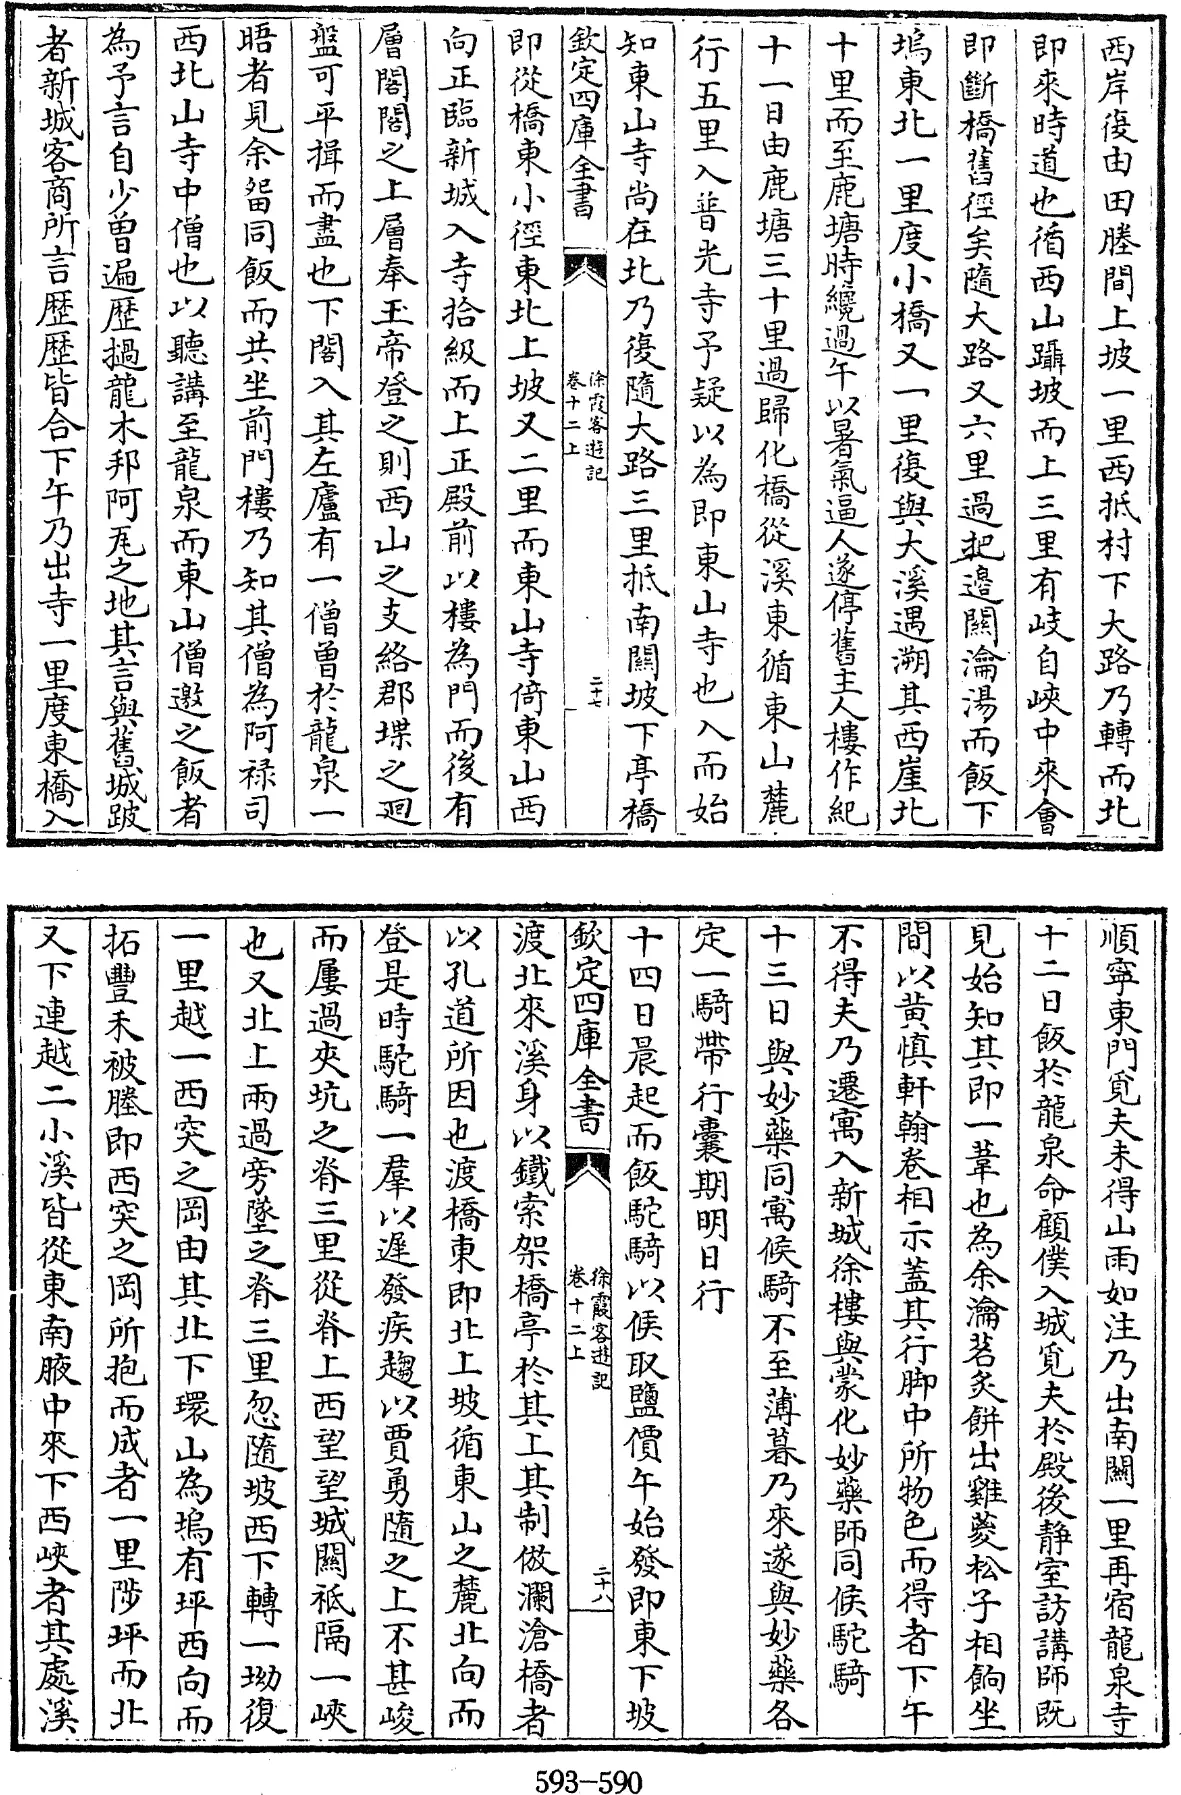 西岸復由田塍間上坡一里西抵村下大路乃轉而北
即來時道也循西山躡坡而上三里有岐自峽中來會
即斷橋舊徑矣隨大路又六里過把邉關瀹湯而飯下
塢東北一里度小橋又一里復與大溪遇溯其西崖北
十里而至鹿塘時纔過午以暑氣逼人遂停舊主人樓作紀
十一日由鹿塘三十里過歸化橋從溪東循東山麓
行五里入普光寺予疑以為即東山寺也入而始
知東山寺尚在北乃復隨大路三里抵南關坡下亭橋
欽定四庫全書
徐霞客遊記
卷十二上
二十七
即從橋東小徑東北上坡又二里而東山寺倚東山西
向正臨新城入寺拾級而上正殿前以樓為門而後有
層閣閣之上層奉玉帝登之則西山之支絡郡堞之迴
盤可平揖而盡也下閣入其左廬有一僧曾於龍泉一
晤者見余畱同飯而共坐前門樓乃知其僧為阿禄司
西北山寺中僧也以聽講至龍泉而東山僧邀之飯者
為予言自少曽遍歴撾龍木邦阿瓦之地其言與舊城跛
者新城客商所言歴歴皆合下午乃出寺一里度東橋入
順寧東門覓夫未得山雨如注乃出南關一里再宿龍泉寺
十二日飯於龍泉命顧僕入城覓夫於殿後靜室訪講師既
見始知其即一葦也為余瀹茗炙餅出雞葼松子相餉坐
間以黄慎軒翰卷相示蓋其行脚中所物色而得者下午
不得夫乃遷寓入新城徐樓與蒙化妙藥師同候駝騎
十三日與妙藥同寓候騎不至薄暮乃來遂與妙藥各
定一騎帶行囊期明日行
十四日晨起而飯駝騎以候取鹽價午始發即東下坡
欽定四庫全書
徐霞客遊記
卷十二上
二十八
渡北來溪身以鐵索架橋亭於其上其制倣瀾滄橋者
以孔道所因也渡橋東即北上坡循東山之麓北向而
登是時駝騎一羣以遲發疾趨以賈勇隨之上不甚峻
而屢過夾坑之脊三里從脊上西望望城關祗隔一峽
也又北上兩過旁墜之脊三里忽隨坡西下轉一坳復
一里越一西突之岡由其北下環山為塢有坪西向而
拓豐禾被塍即西突之岡所抱而成者一里陟坪而北
又下連越二小溪皆從東南腋中來下西峽者其處溪
593-590